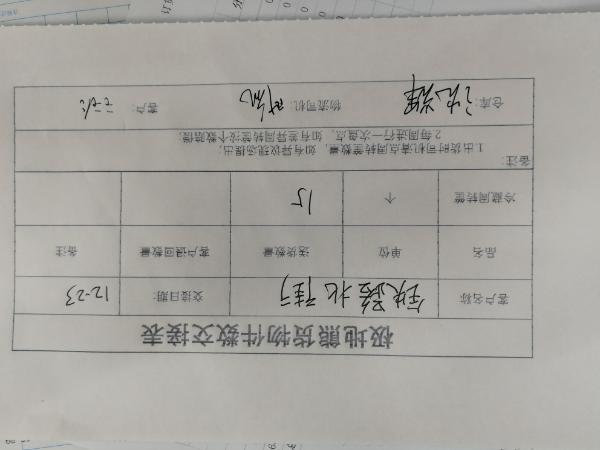 极地熊货物件数交接表
客户名称 铁路北街 交接日期: 12-23
品名 单位 送货数量 客户退回数量 备注
冷藏周转筐 个 15
备注:
1.出货时司机清点周转筐数量，如有异议现场提出；
2.每周进行一次盘点，如有差异周转筐按个数赔偿；
仓库: 沈辉 物流司机: 客户: